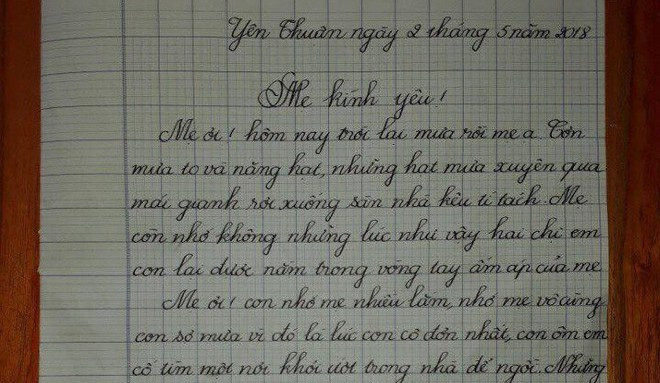 Yên Thuận ngày 2 tháng 5 năm 2018
Mẹ kính yêu!
Mẹ ơi! hôm nay trời lại mưa rồi mẹ ạ. Cơn
mưa to và nặng hạt, những hạt mưa xuyên qua
mái gianh rơi xuống sàn nhà kêu tí tách. Mẹ
còn nhớ không những lúc như vậy hai chị em
con lại được nằm trong vòng tay ấm áp của mẹ
Mẹ ơi! con nhớ mẹ nhiều lắm, nhớ mẹ vô cùng
con sợ mưa vì đó là lúc con cô đơn nhất, con ôm em
cố tìm một nơi khỏi ướt trong nhà để ngồi. Những